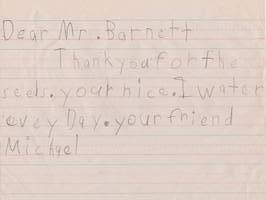 Dear Mr. Barnett
Thankyou for the
seeds. your nice. I water
evey Day. your friend
Michael